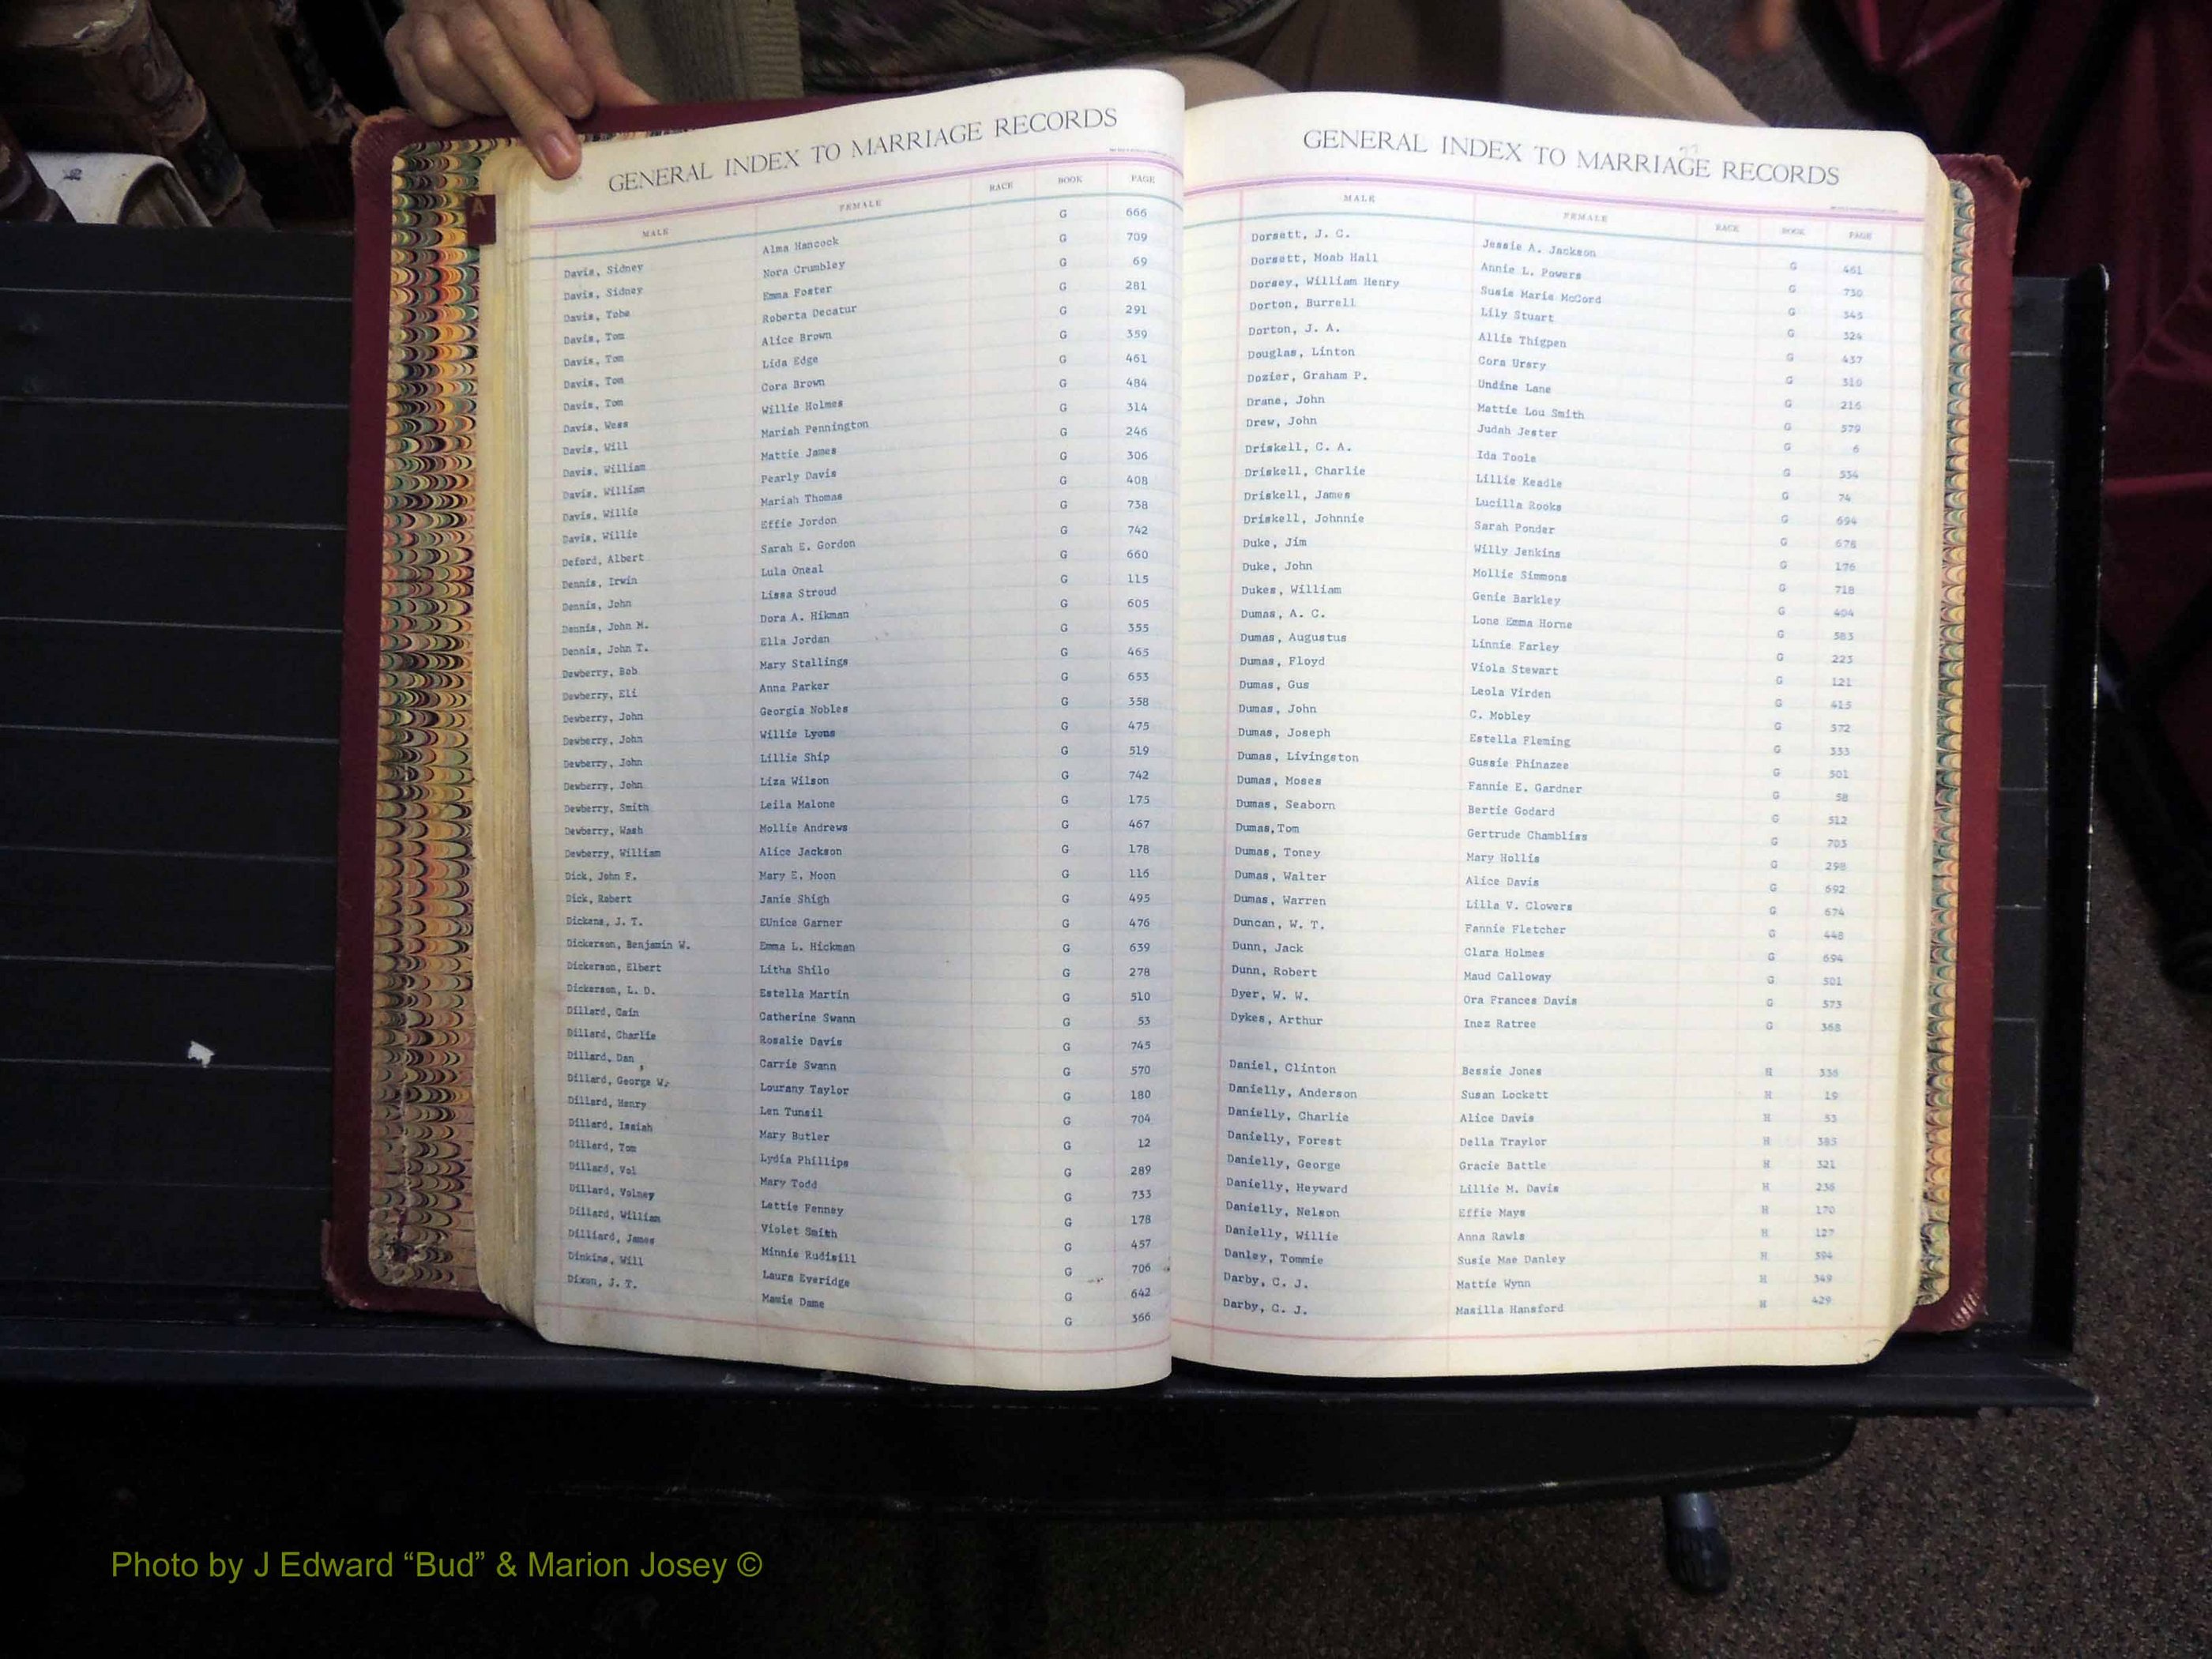 GENERAL INDEX TO MARRIAGE RECORDS
MALE FEMALE RACE BOOK PAGE
Davis, Sidney Alma Hancock G 666
Davis, Sidney Nora Crumbley G 709
Davis, Tobe Emma Foster G 69
Davis, Tom Roberta Decatur G 281
Davis, Tom Alice Brown G 291
Davis, Tom Lida Edge G 359
Davis, Tom Cora Brown G 461
Davis, Wess Willie Holmes G 484
Davis, Will Mariah Pennington G 314
Davis, William Mattie James G 246
Davis, William Pearly Davis G 306
Davis, Willie Mariah Thomas G 408
Davis, Willie Effie Jordon G 738
Deford, Albert Sarah E. Gordon G 742
Dennis, Irwin Lula Oneal G 660
Dennis, John Lissa Stroud G 115
Dennis, John M. Dora A. Hikman G 605
Dennis, John T. Ella Jordan G 355
Dewberry, Bob Mary Stallings G 465
Dewberry, Eli Anna Parker G 653
Dewberry, John Georgia Nobles G 358
Dewberry, John Willie Lyons G 475
Dewberry, John Lillie Ship G 519
Dewberry, John Liza Wilson G 742
Dewberry, Smith Leila Malone G 175
Dewberry, Wash Mollie Andrews G 467
Dewberry, William Alice Jackson G 178
Dick, John F. Mary E. Moon G 116
Dick, Robert Janie Shigh G 495
Dickens, J. T. EUnice Garner G 476
Dickerson, Benjamin W. Emma L. Hickman G 639
Dickerson, Elbert Litha Shilo G 278
Dickerson, L. D. Estella Martin G 510
Dillard, Cain Catherine Swann G 53
Dillard, Charlie Rosalie Davis G 745
Dillard, Dan Carrie Swann G 570
Dillard, George W. Lourany Taylor G 180
Dillard, Henry Len Tunsil G 704
Dillard, Isaiah Mary Butler G 12
Dillard, Tom Lydia Phillips G 289
Dillard, Val Mary Todd G 733
Dillard, Volney Lettie Fenney G 178
Dillard, William Violet Smith G 457
Dilliard, James Minnie Rudisill G 706
Dinkins, Will Laura Everidge G 642
Dixon, J. T. Mamie Dame G 366
GENERAL INDEX TO MARRIAGE RECORDS
MALE FEMALE RACE BOOK PAGE
Dorsett, J. C. Jessie A. Jackson G 461
Dorsett, Moab Hall Annie L. Powers G 730
Dorsey, William Henry Susie Marie McCord G 345
Dorton, Burrell Lily Stuart G 324
Dorton, J. A. Allie Thigpen G 437
Douglas, Linton Cora Ursry G 310
Dozier, Graham P. Undine Lane G 216
Drane, John Mattie Lou Smith G 579
Drew, John Judah Jester G 6
Driskell, C. A. Ida Toole G 554
Driskell, Charlie Lillie Keadle G 74
Driskell, James Lucilla Rooks G 694
Driskell, Johnnie Sarah Ponder G 678
Duke, Jim Willy Jenkins G 176
Duke, John Mollie Simmons G 718
Dukes, William Genie Barkley G 404
Dumas, A. C. Lone Emma Horne G 583
Dumas, Augustus Linnie Farley G 223
Dumas, Floyd Viola Stewart G 121
Dumas, Gus Leola Virden G 415
Dumas, John C. Mobley G 572
Dumas, Joseph Estella Fleming G 333
Dumas, Livingston Gussie Phinazee G 501
Dumas, Moses Fannie E. Gardner G 58
Dumas, Seaborn Bertie Godard G 512
Dumas,Tom Gertrude Chambliss G 703
Dumas, Toney Mary Hollis G 298
Dumas, Walter Alice Davis G 692
Dumas, Warren Lilla V. Clowers G 674
Duncan, W. T. Fannie Fletcher G 448
Dunn, Jack Clara Holmes G 694
Dunn, Robert Maud Calloway G 301
Dyer, W. W. Ora Frances Davis G 573
Dykes, Arthur Inez Ratree G 368
Daniel, Clinton Bessie Jones H 336
Danielly, Anderson Susan Lockett H 19
Danielly, Charlie Alice Davis H 53
Danielly, Forest Della Traylor H 383
Danielly, George Gracie Battle H 321
Danielly, Heyward Lillie M. Davis H 236
Danielly, Nelson Effie Mays H 170
Danielly, Willie Anna Rawls H 127
Danley, Tommie Susie Mae Danley H 394
Darby, C. J. Mattie Wynn H 349
Darby, C. J. Masilla Hansford H 429
A
Photo by J Edward “Bud” & Marion Josey ©